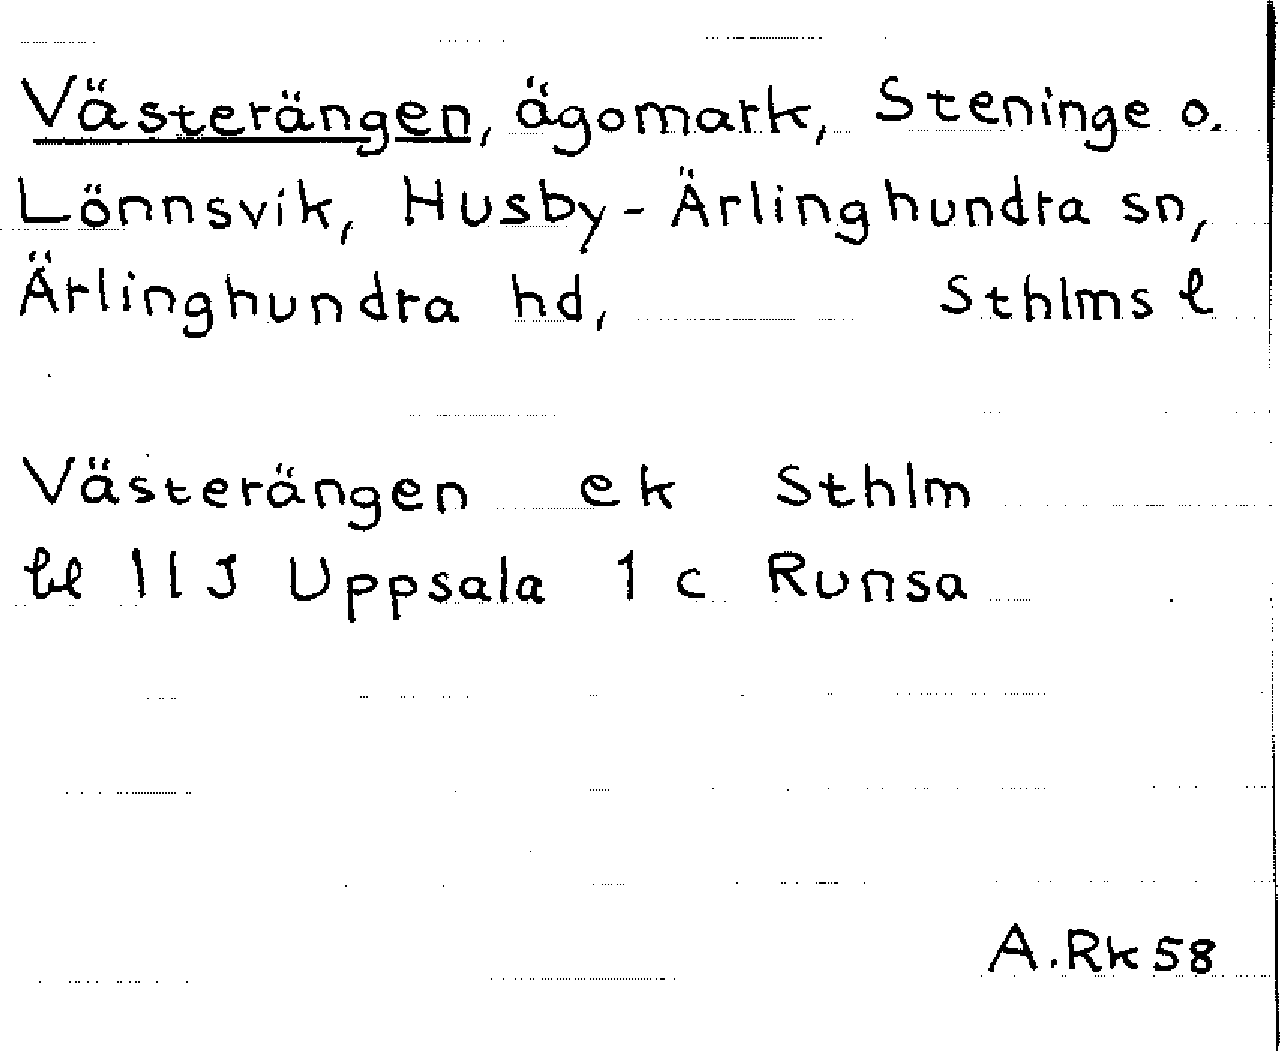 Västerängen, ägomark, Steninge o.
Lönnsvik, Husby-Ärlinghundra sn,
Ärlinghundra hd, Sthlms l
Västerängen ek Sthlm
bl 11J Uppsala 1 c Runsa
A.Rk 58